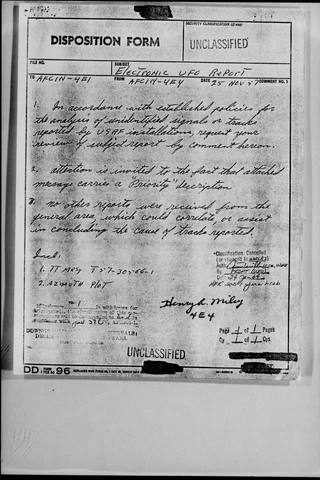 SECURITY CLASSIFICATION (If any)
DISPOSITION FORM
UNCLASSIFIED
FILE NO.
SUBJECT
ELECTRONIC UFO REPORT
TO AFCIN-4E1
FROM AFCIN-4E4
DATE 25 NOV 57
COMMENT NO. 1
1. In accordance with established policies for
the analysis of unidentified signals or tracks
reported by USAF installations, request your
review of subject report by comment hereon.
2. attention is invited to the fact that attached
message carries a "Priority"
3. no other reports were received from the
general area which could correlate, or assist
in concluding the cause of tracks reported.
Incl:
1. TT Msg T57-30566-1
2. AZIMUTH PLOT
Classification Cancelled
(or changed to
Auth
By
Date
Henry A. Miley
4E4
Page 1 of 1 Pages
Cy 1 of 1 Cys
UNCLASSIFIED
DD FORM 96